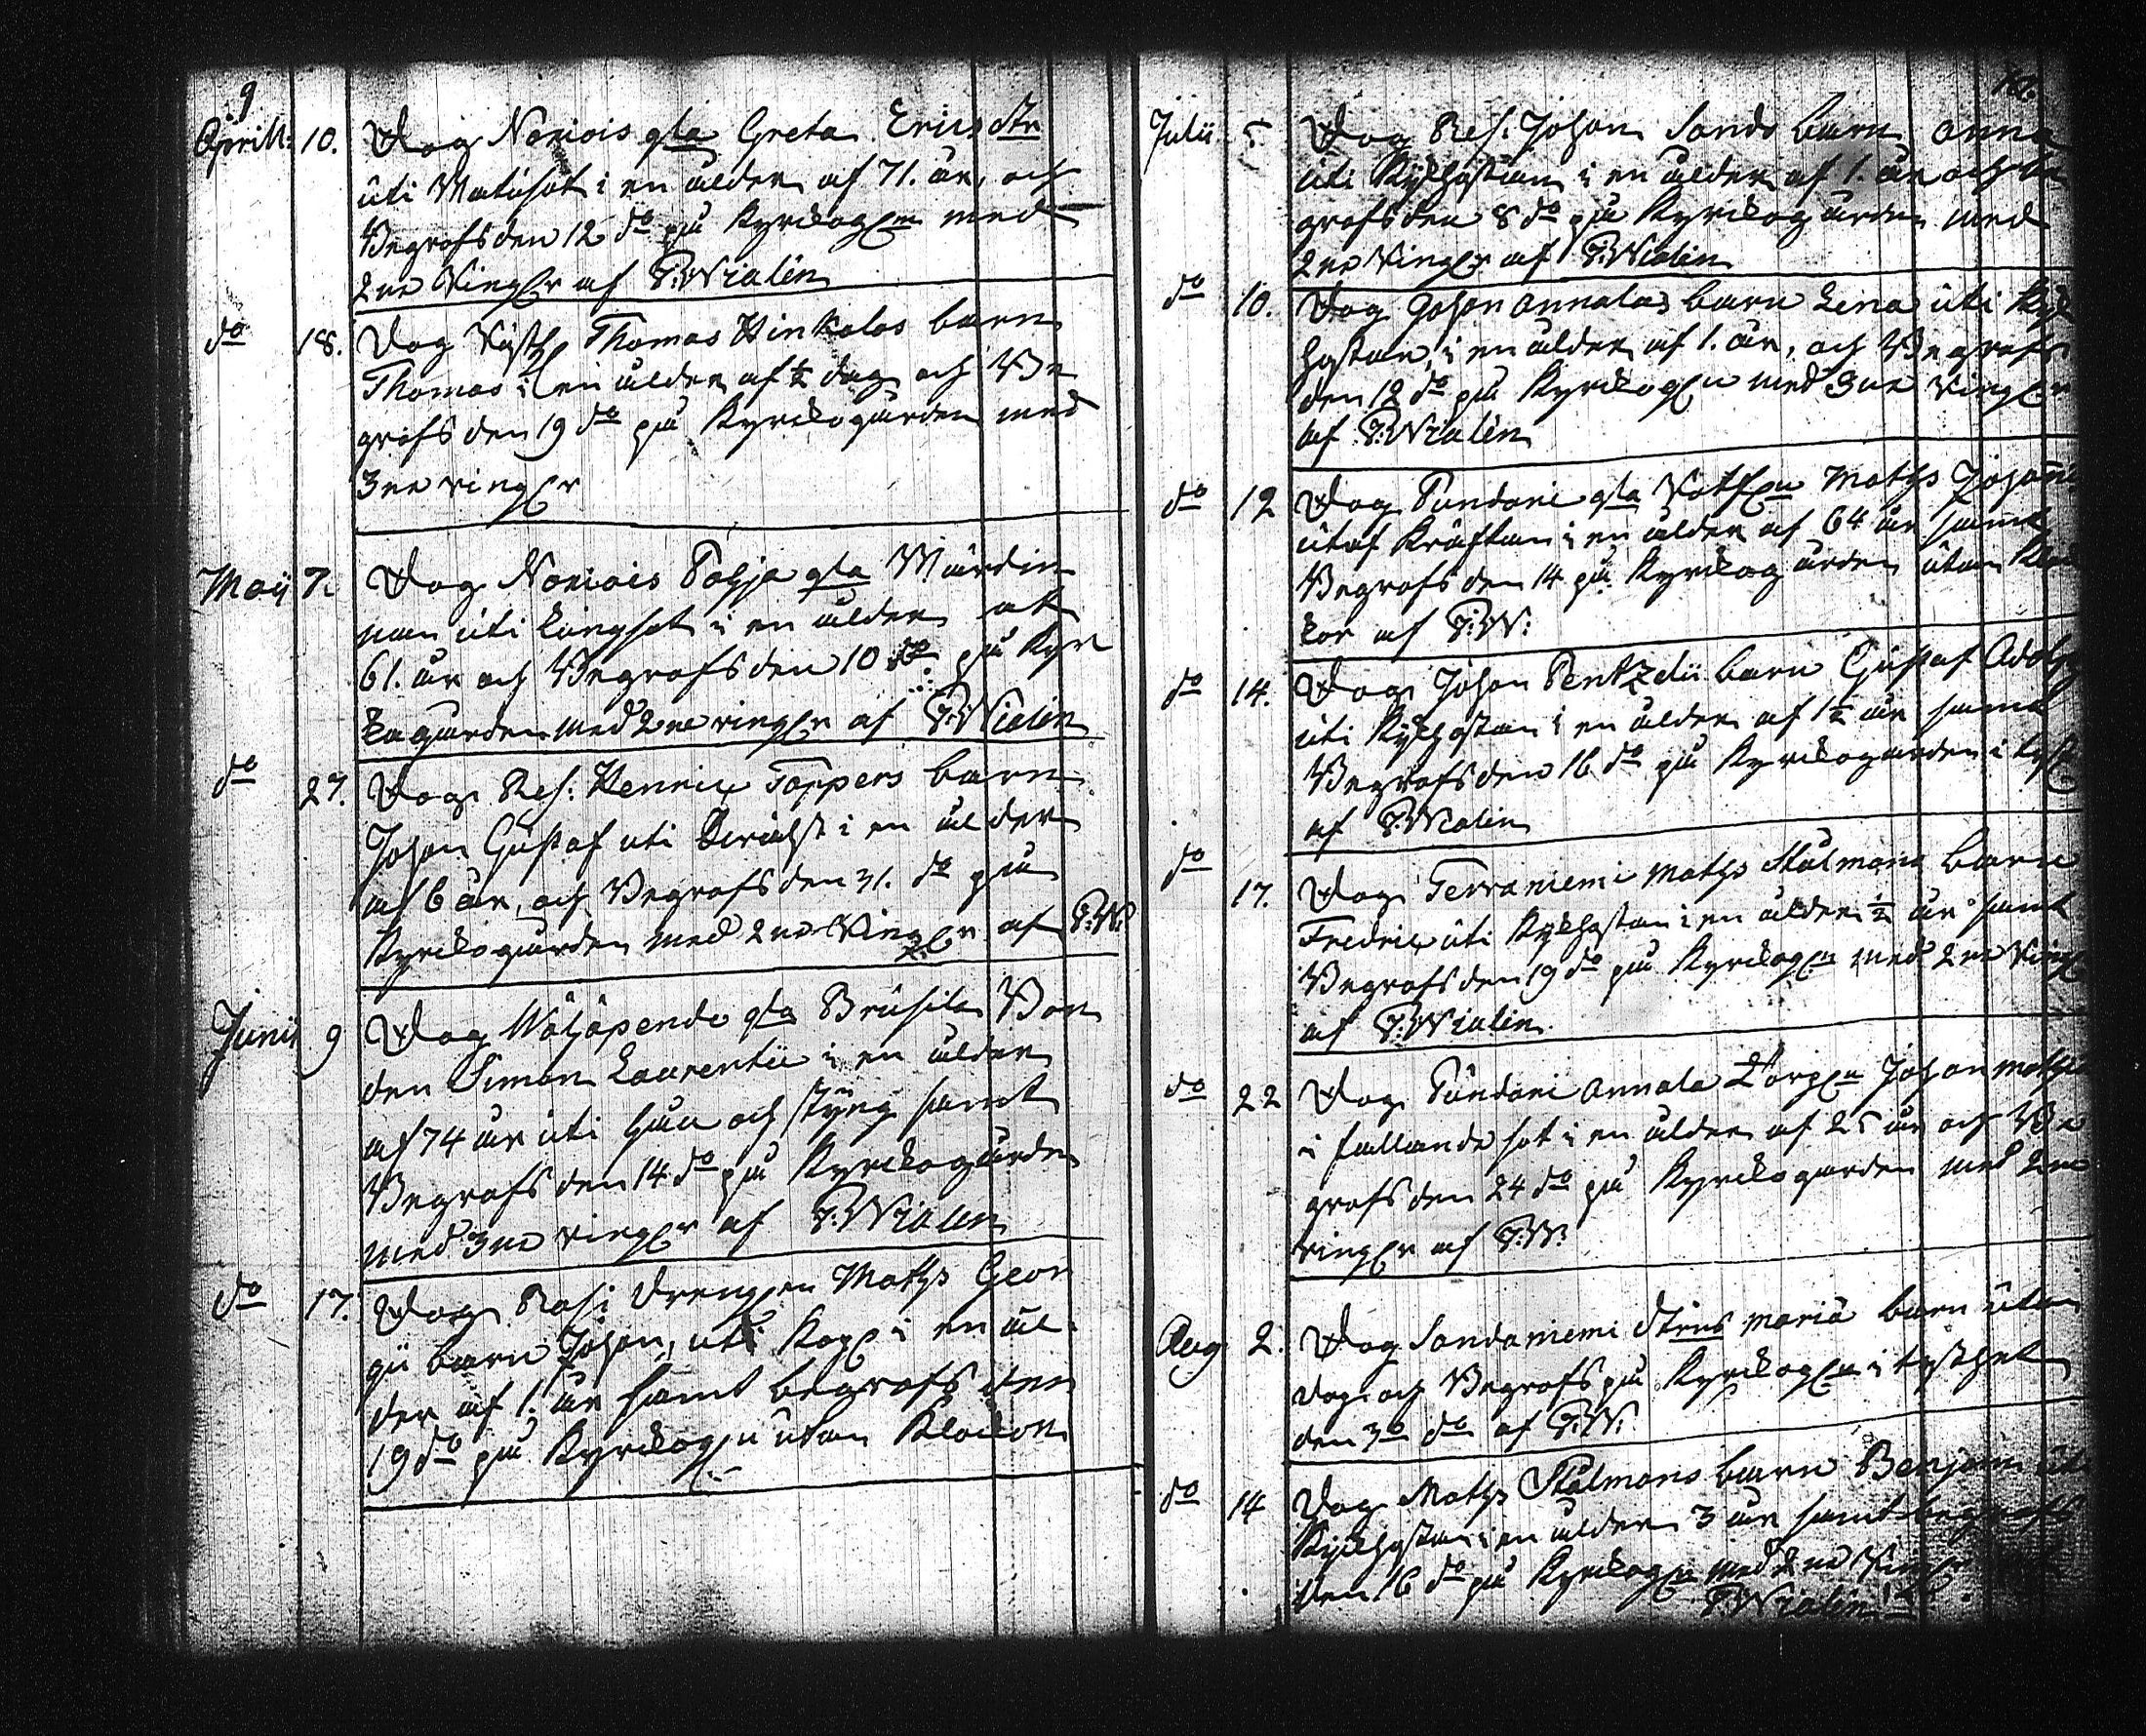 9
Aprill: 10. Dog Noriois gla Greta Ericsdtr
uti Matsot i en ålder af 71. år, och
Begrofs den 12 do på Kyrckogn med
2ne Ringr af P: Wialén
do 18. Dog Thomas Hinkalas barn
Thomas i en ålder af ½ dag och Be
grofs den 19 do på Kyrckogården med
3ne ringr
Maij 7. Dog Noriois Pohja gla Värdin
nan uti lungsot i en ålder af
61. år och Begrofs den 10 do på Kyr
kagården med 2ne ringr af P: Wialén
do 27. Dog Ref: Henric Toppers barn
Johan Gustaf uti i en ålder
af 6 år, och Begrofs den 31. do på
Kyrckogården med 2ne Ringr af P: W:
Junii 9 Dog gla Brusila Bon
den Simon Laurentii i en ålder
af 74 år uti håll och styng samt
Begrofs den 14 do på Kyrckogården
med 3ne ringr af P: Wialén
do 17. Dog Rasi Drengen Maths Geor
gii barn Johan, uti Kopp i en ål
der af 1. år samt begrofs den
19 do på Kyrckogn utan Klockor
10.
Julii 5 Dog Ref. Johan Sands barn Anna
uti Kikhostan i en ålder af 1. år och be
grofs den 8 do på Kyrckogården med
2ne Ringr af P: Wialén
do 10. Dog Johan Annalas barn Lena uti Kik
hostan, i en ålder af 1. år, och Begrofs
den 12 do på Kyrckogn med 3ne ringr
af P: Wialén
do 12 Dog Pundari gla Maths Johan
utaf Kräftan i en ålder af 64 år samt
Begrofs den 14 på Kyrckogården utan Kloc
kor af P: W:
do 14. Dog Johan Pentzelii barn Gustaf Adolph
uti Kikhostan i en ålder af 1½ år samt
Begrofs den 16 do på Kyrckogården i
af P: Wialin
do 17. Dog Terraniemi Maths Stålmans barn
Fredric uti Kikhostan i en ålder ½ år samt
Begrofs den 19 do på Kyrckogn med 2ne Ringr
af P: Wialén.
do 22 Dog Pundari Annala Johan Maths
i fallande sot i en ålder af 25 år och Be
grofs den 24 do på Kyrckogården med 2ne
ringr af P: W:
Aug 2. Dog Sandaniemi Maria barn utan
dop och Begrofs på Kyrckogn i tysthet
den 3o do af P: W:
do 14 Dog Maths Stålmans barn Benjamin uti
Kikhostan i en ålder 3 år samt begrofs
den 16 do på Kyrckogn med 2ne Ringr
P: Wialén